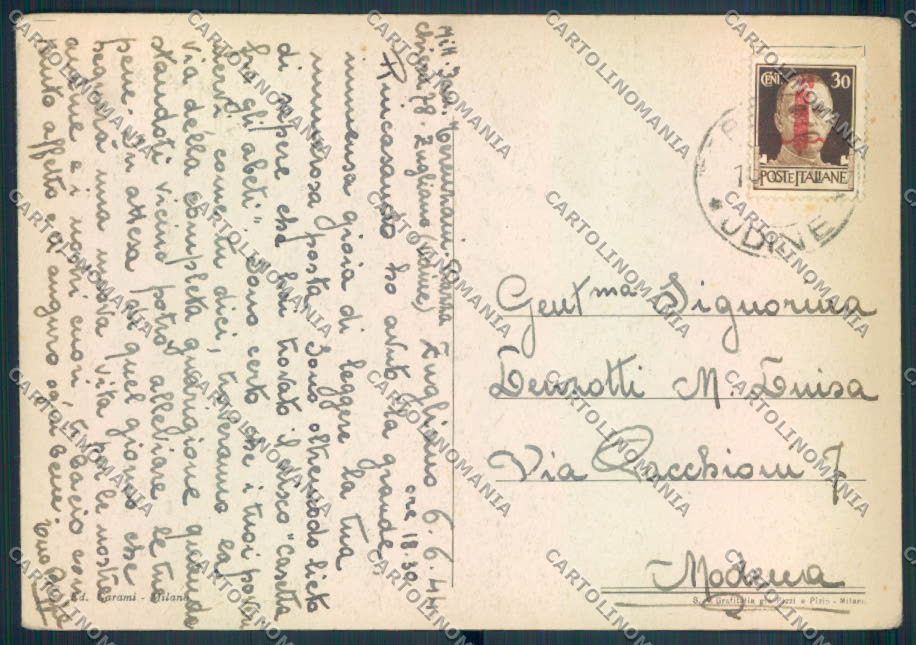 Mitt.
chiusi 78 Zugliano (Udine)
Zugliano 6.6.44
ore 18.30
Rincasando ho avuto la grande,
immensa gioia di leggere la tua
numerosa posta. Sono oltremodo lieto
di sapere che hai trovato il bosco "Casetta
fra gli abeti". Sono certo che i tuoi
come tu dici, troveranno
via della completa guarigione quando
standoti vicino potrò alleviare le tue
pene. In attesa di quel giorno che
segnerà una nuova vita per le nostre
anime e i nostri cuori ti bacio con
tanto affetto e ti auguro ogni bene. tuo
Ed. Garami - Milano
CENT 30
POSTE ITALIANE
UDINE
Gent.ma Signorina
Lenzotti M. Luisa
Via Cacchioni 7
Modena
S. A. Grafitalia già Pizzi e Pizio - Milano
CARTOLINOMANIA